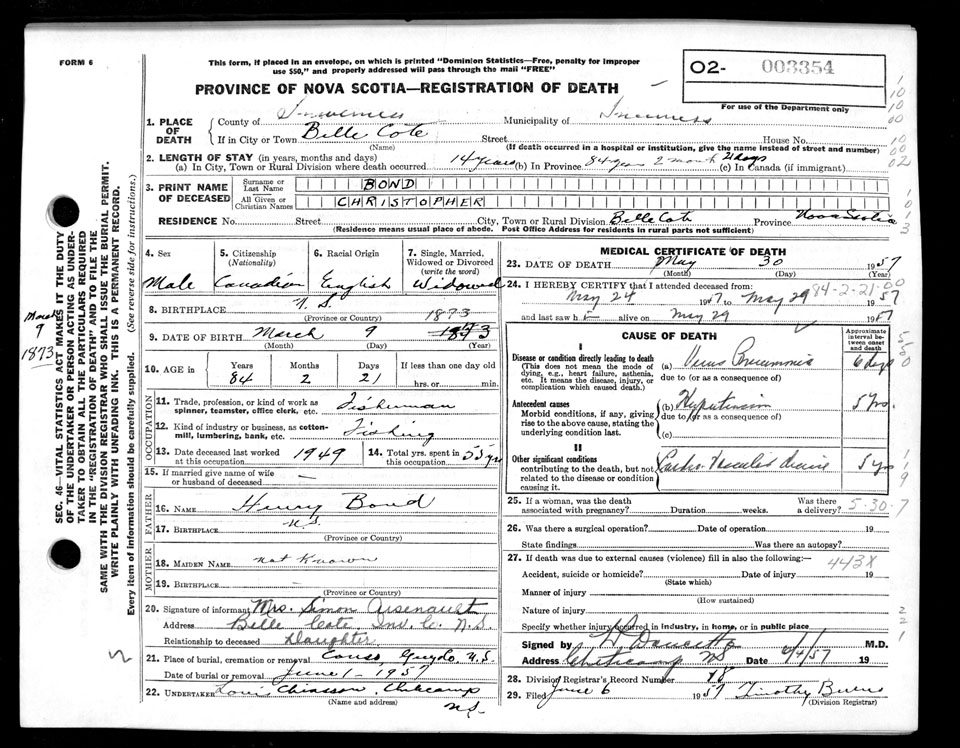 FORM 6
This form, if placed in an envelope, on which is printed "Dominion Statistics—Free, penalty for improper
use $50," and properly addressed will pass through the mail "FREE"
O2- 003354
PROVINCE OF NOVA SCOTIA—REGISTRATION OF DEATH
For use of the Department only
1. PLACE OF DEATH
County of Inverness Municipality of Inverness
If in City or Town Belle Cote Street House No.
(Name) (If death occurred in a hospital or institution, give the name instead of street and number)
2. LENGTH OF STAY (in years, months and days)
(a) In City, Town or Rural Division where death occurred 14 years (b) In Province 84 years 2 month 21 days (c) In Canada (if immigrant)
3. PRINT NAME OF DECEASED
Surname or Last Name BOND
All Given or Christian Names CHRISTOPHER
RESIDENCE No. Street City, Town or Rural Division Belle Cote Province Nova Scotia
(Residence means usual place of abode. Post Office Address for residents in rural parts not sufficient)
SEC. 46—VITAL STATISTICS ACT MAKES IT THE DUTY
OF THE UNDERTAKER OR PERSON ACTING AS UNDER-
TAKER TO OBTAIN ALL THE PARTICULARS REQUIRED
IN THE "REGISTRATION OF DEATH" AND TO FILE THE
SAME WITH THE DIVISION REGISTRAR WHO SHALL ISSUE THE BURIAL PERMIT.
WRITE PLAINLY WITH UNFADING INK. THIS IS A PERMANENT RECORD.
Every item of information should be carefully supplied. (See reverse side for instructions.)
March
9
1873
4. Sex
Male
5. Citizenship
(Nationality)
Canadian
6. Racial Origin
English
7. Single, Married,
Widowed or Divorced
(write the word)
Widowed
8. BIRTHPLACE N. S.
(Province or Country)
1873
9. DATE OF BIRTH March 9 1873
(Month) (Day) (Year)
10. AGE in
Years Months Days If less than one day
84 2 21 hrs. or min.
OCCUPATION
11. Trade, profession, or kind of work as
spinner, teamster, office clerk, etc. Fisherman
12. Kind of industry or business, as cotton-
mill, lumbering, bank, etc. Fishing
13. Date deceased last worked
at this occupation 1949
14. Total yrs. spent in
this occupation 55 yrs
15. If married give name of wife
or husband of deceased —
FATHER
16. NAME Henry Bond
17. BIRTHPLACE N.S.
(Province or Country)
MOTHER
18. MAIDEN NAME not Known
19. BIRTHPLACE —
(Province or Country)
20. Signature of informant Mrs. Simon Arsenault
Address Belle Cote, Inv. Co. N.S.
Relationship to deceased Daughter
21. Place of burial, cremation or removal Canso, Guysbo, N.S.
Date of burial or removal June 1 - 1957
22. UNDERTAKER Louis Chiasson, Cheticamp
(Name and address) N.S.
MEDICAL CERTIFICATE OF DEATH
23. DATE OF DEATH May 30 1957
(Month) (Day) (Year)
24. I HEREBY CERTIFY that I attended deceased from: 84-2-21-00
May 24 1957 to May 29 1957
and last saw h alive on May 29 1957
CAUSE OF DEATH
Approximate
interval between
onset
and death
I
Disease or condition directly leading to death
(This does not mean the mode of
dying, e.g., heart failure, asthenia,
etc. It means the disease, injury, or
complication which caused death.)
(a) Virus Pneumonia 6 days
due to (or as a consequence of)
Antecedent causes
Morbid conditions, if any, giving
rise to the above cause, stating the
underlying condition last.
(b) Hypertension 5 yrs.
due to (or as a consequence of)
(c)
II
Other significant conditions
contributing to the death, but not
related to the disease or condition
causing it.
Cardio-Vascular disease 5 yrs
25. If a woman, was the death
associated with pregnancy? Duration weeks. Was there
a delivery? 5-30-7
26. Was there a surgical operation? Date of operation 19
State findings Was there an autopsy?
27. If death was due to external causes (violence) fill in also the following:—
443X
Accident, suicide or homicide? Date of injury 19
(State which)
Manner of injury
(How sustained)
Nature of injury
Specify whether injury occurred in industry, in home, or in public place
Signed by M.D.
Address Cheticamp NS Date 6/4/57 19
28. Division Registrar's Record Number 48
29. Filed June 6 1957 Timothy Burns
(Division Registrar)